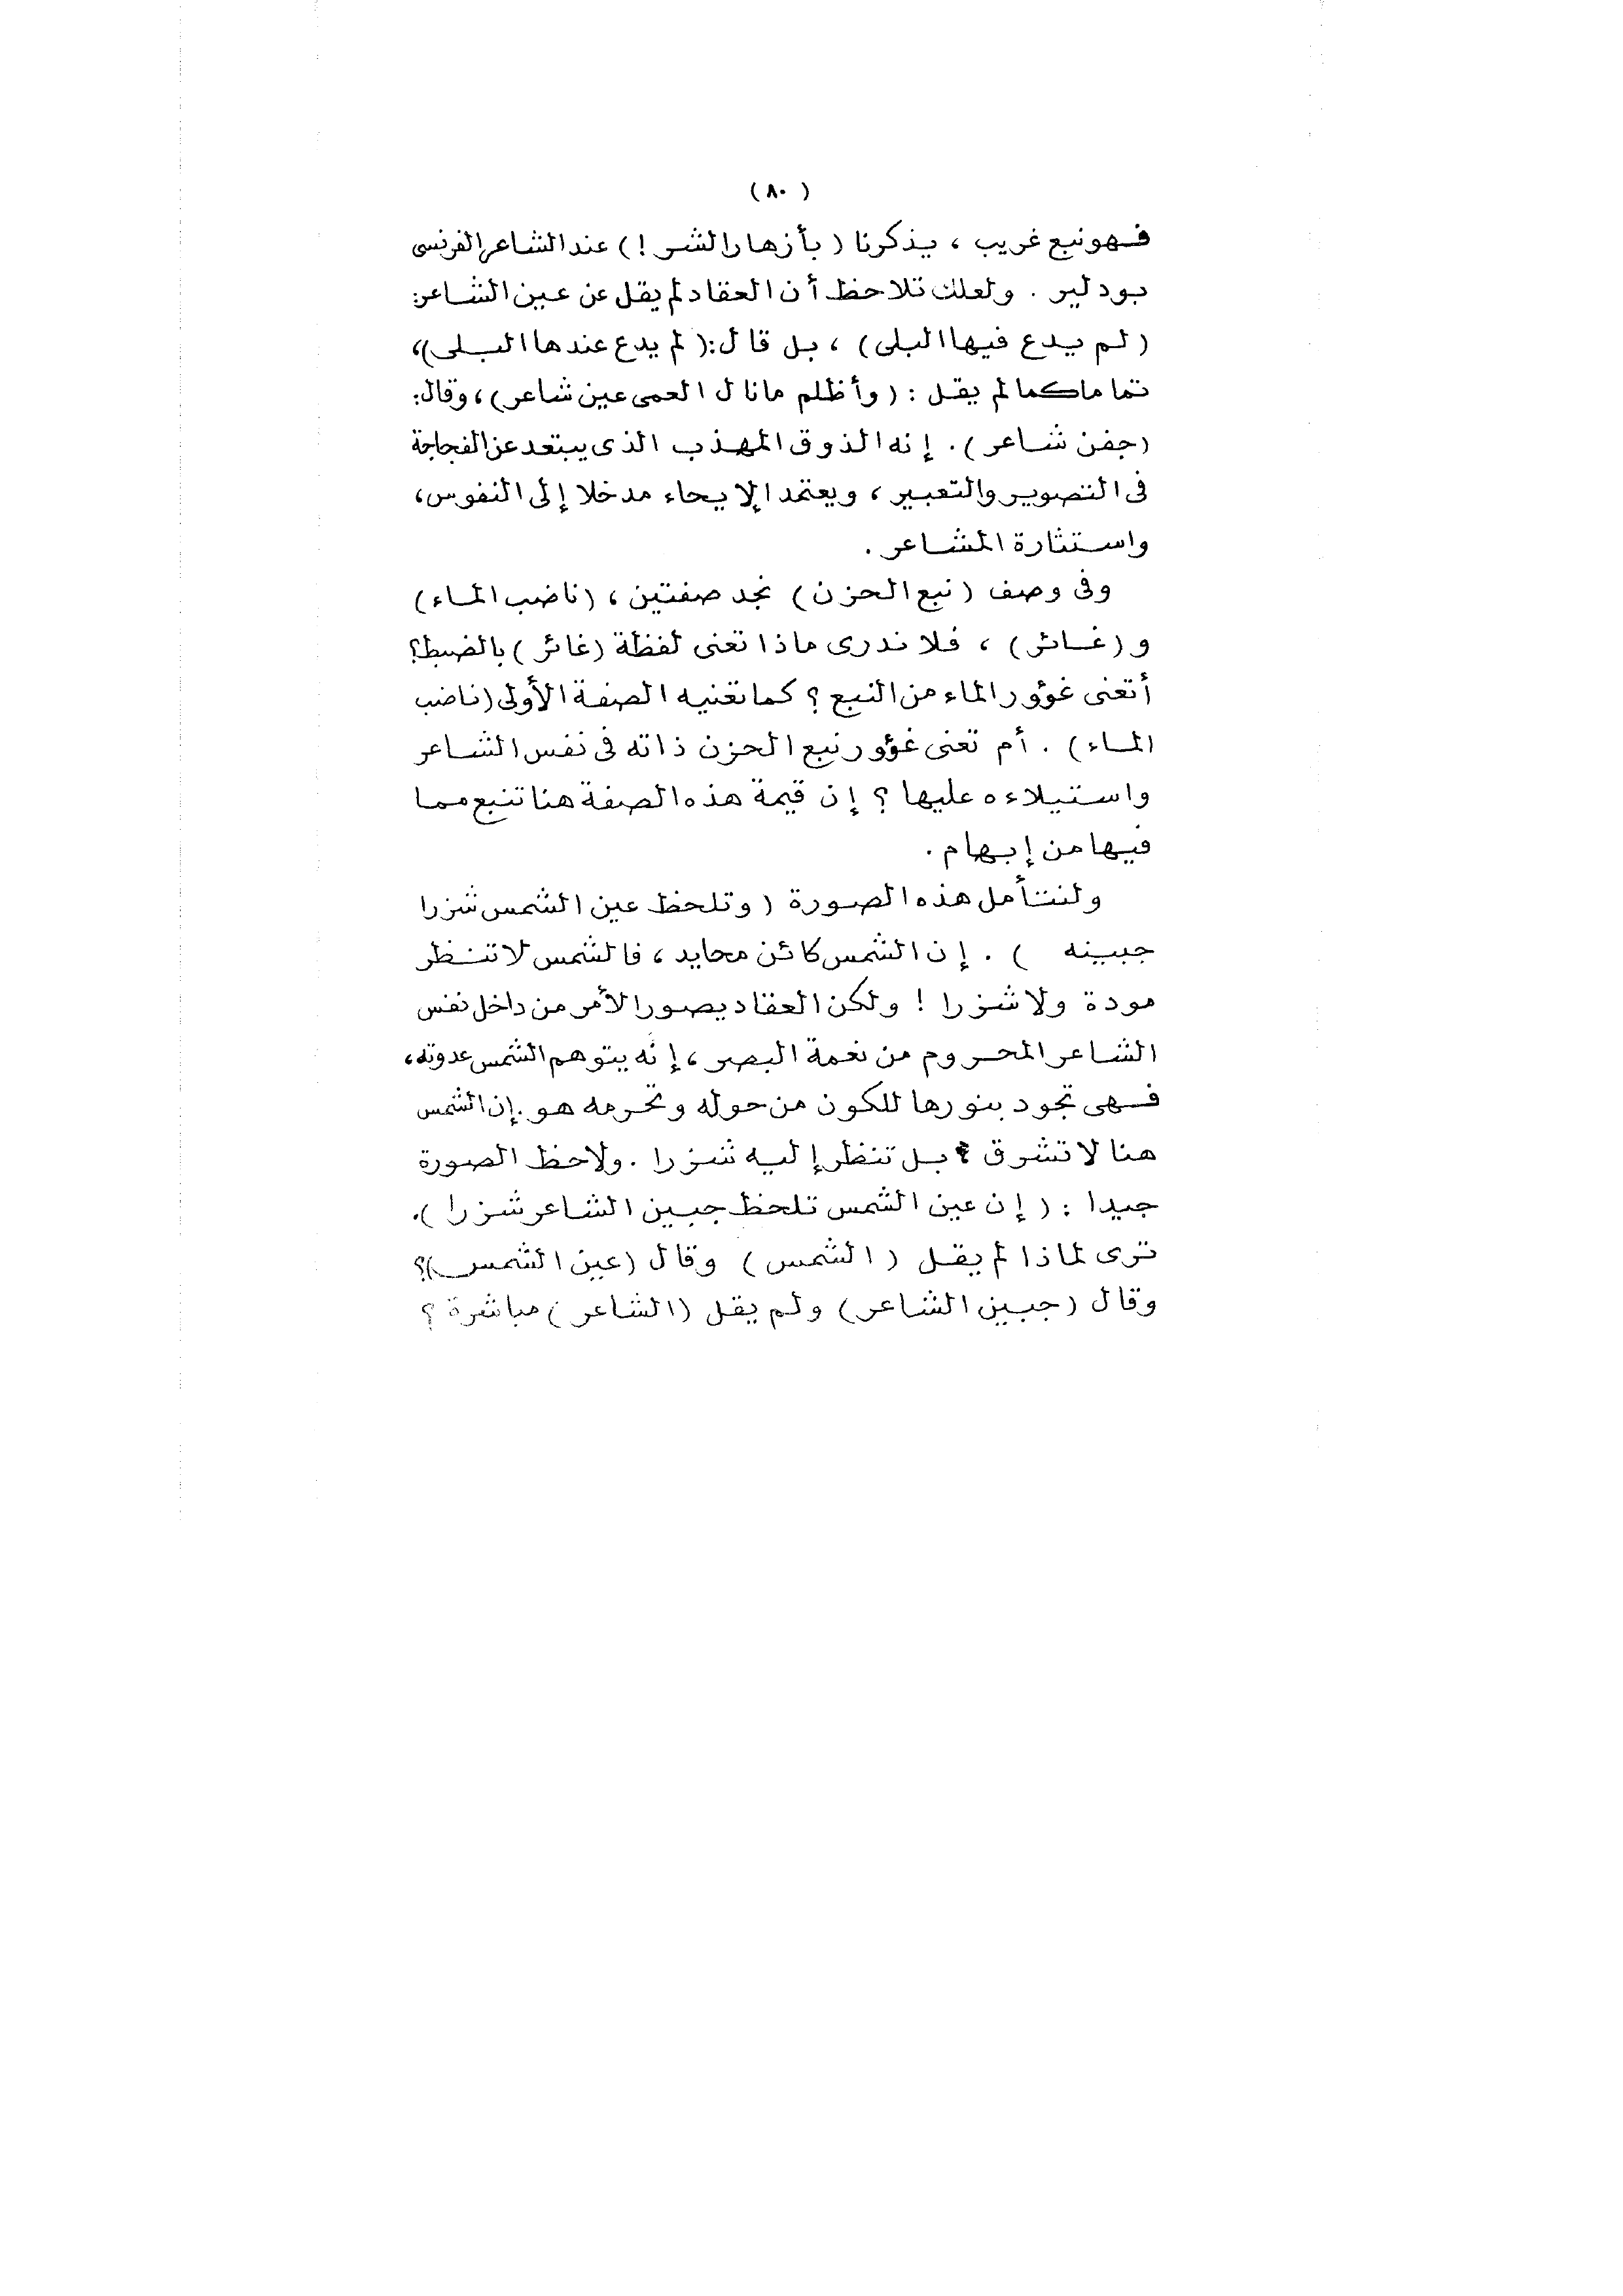 (٨٠)
فهو نبع غريب ، يذكرنا ( بأزهار الشر ! ) عند الشاعر الفرنسى
بودلير . ولعلك تلاحظ أن العقاد لم يقل عن عين الشاعر:
(لم يدع فيها البلى) ، بل قال:( لم يدع عندها البلى)،
تماما كما لم يقل : (وأظلم مانال العمى عين شاعر)، وقال:
(جفن شاعر). إنه الذوق المهذب الذى يبتعد عن الفجاجة
فى التصوير والتعبير ، ويعتمد الإيحاء مدخلا إلى النفوس،
واستثارة المشاعر .
وفى وصف (نبع الحزن) نجد صفتين ، (ناضب الماء)
و (غائر) ، فلا ندرى ماذا تعنى لفظة (غائر) بالضبط؟
أتعنى غؤور الماء من النبع ؟ كما تعنيه الصفة الأولى (ناضب
الماء) . أم تعنى غؤور نبع الحزن ذاته فى نفس الشاعر
واستيلاءه عليها ؟ إن قيمة هذه الصفة هنا تنبع مما
فيها من إبهام .
ولنتأمل هذه الصورة ( وتلحظ عين الشمس شزرا
جبينه ) . إن الشمس كائن محايد ، فالشمس لا تنظر
مودة ولا شزرا ! ولكن العقاد يصور الأمر من داخل نفس
الشاعر المحروم من نعمة البصر ، إنه يتوهم الشمس عدوته،
فهى تجود بنورها للكون من حوله وتحرمه هو . إن الشمس
هنا لا تشرق ؛ بل تنظر إليه شزرا . ولاحظ الصورة
جيدا : ( إن عين الشمس تلحظ جبين الشاعر شزرا ).
ترى لماذا لم يقل ( الشمس ) وقال (عين الشمس)؟
وقال (جبين الشاعر) ولم يقل (الشاعر) مباشرة ؟